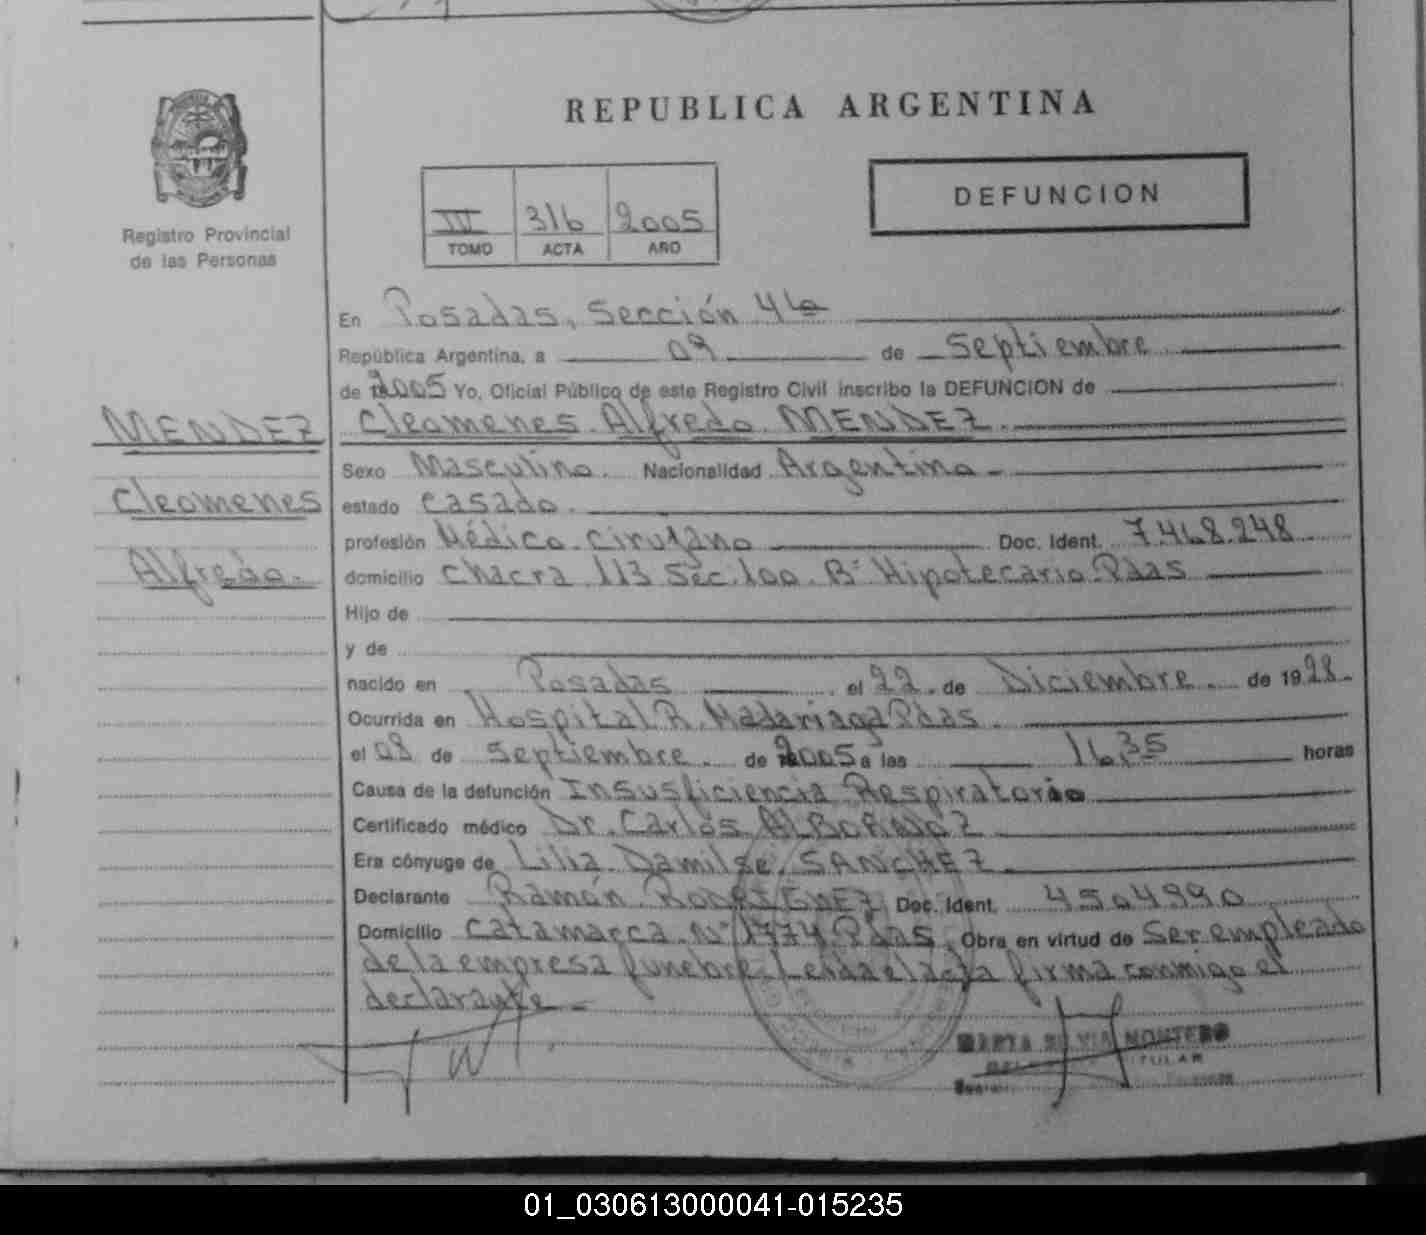 REPUBLICA ARGENTINA
Registro Provincial
de las Personas
III 316 2005
TOMO ACTA AÑO
DEFUNCION
En Posadas, Sección 4ta
República Argentina, a 09 de Septiembre
de 2005 Yo, Oficial Público de este Registro Civil inscribo la DEFUNCION de
MENDEZ
Cleomenes
Alfredo.
Cleomenes Alfredo MENDEZ.
Sexo Masculino. Nacionalidad Argentina
estado Casado.
profesión Médico cirujano Doc. Ident. 7.468.248
domicilio Chacra 113 Sec. 100. Bº Hipotecario. Pdas
Hijo de
y de
nacido en Posadas el 22 de Diciembre de 1928.
Ocurrida en Hospital R. Madariaga Pdas.
el 08 de Septiembre. de 2005 a las 16,35 horas
Causa de la defunción Insusficiencia Respiratoria
Certificado médico Dr. Carlos ALBORNOZ
Era cónyuge de Lilia Damilse SANCHEZ
Declarante Ramón RODRIGUEZ Doc. Ident. 4504990
Domicilio Catamarca Nº 1774 Pdas, Obra en virtud de Ser empleado
de la empresa funebre. Leida el acta firma conmigo el
declarante.
MARTA SILVIA MONTERO
TITULAR
01_030613000041-015235